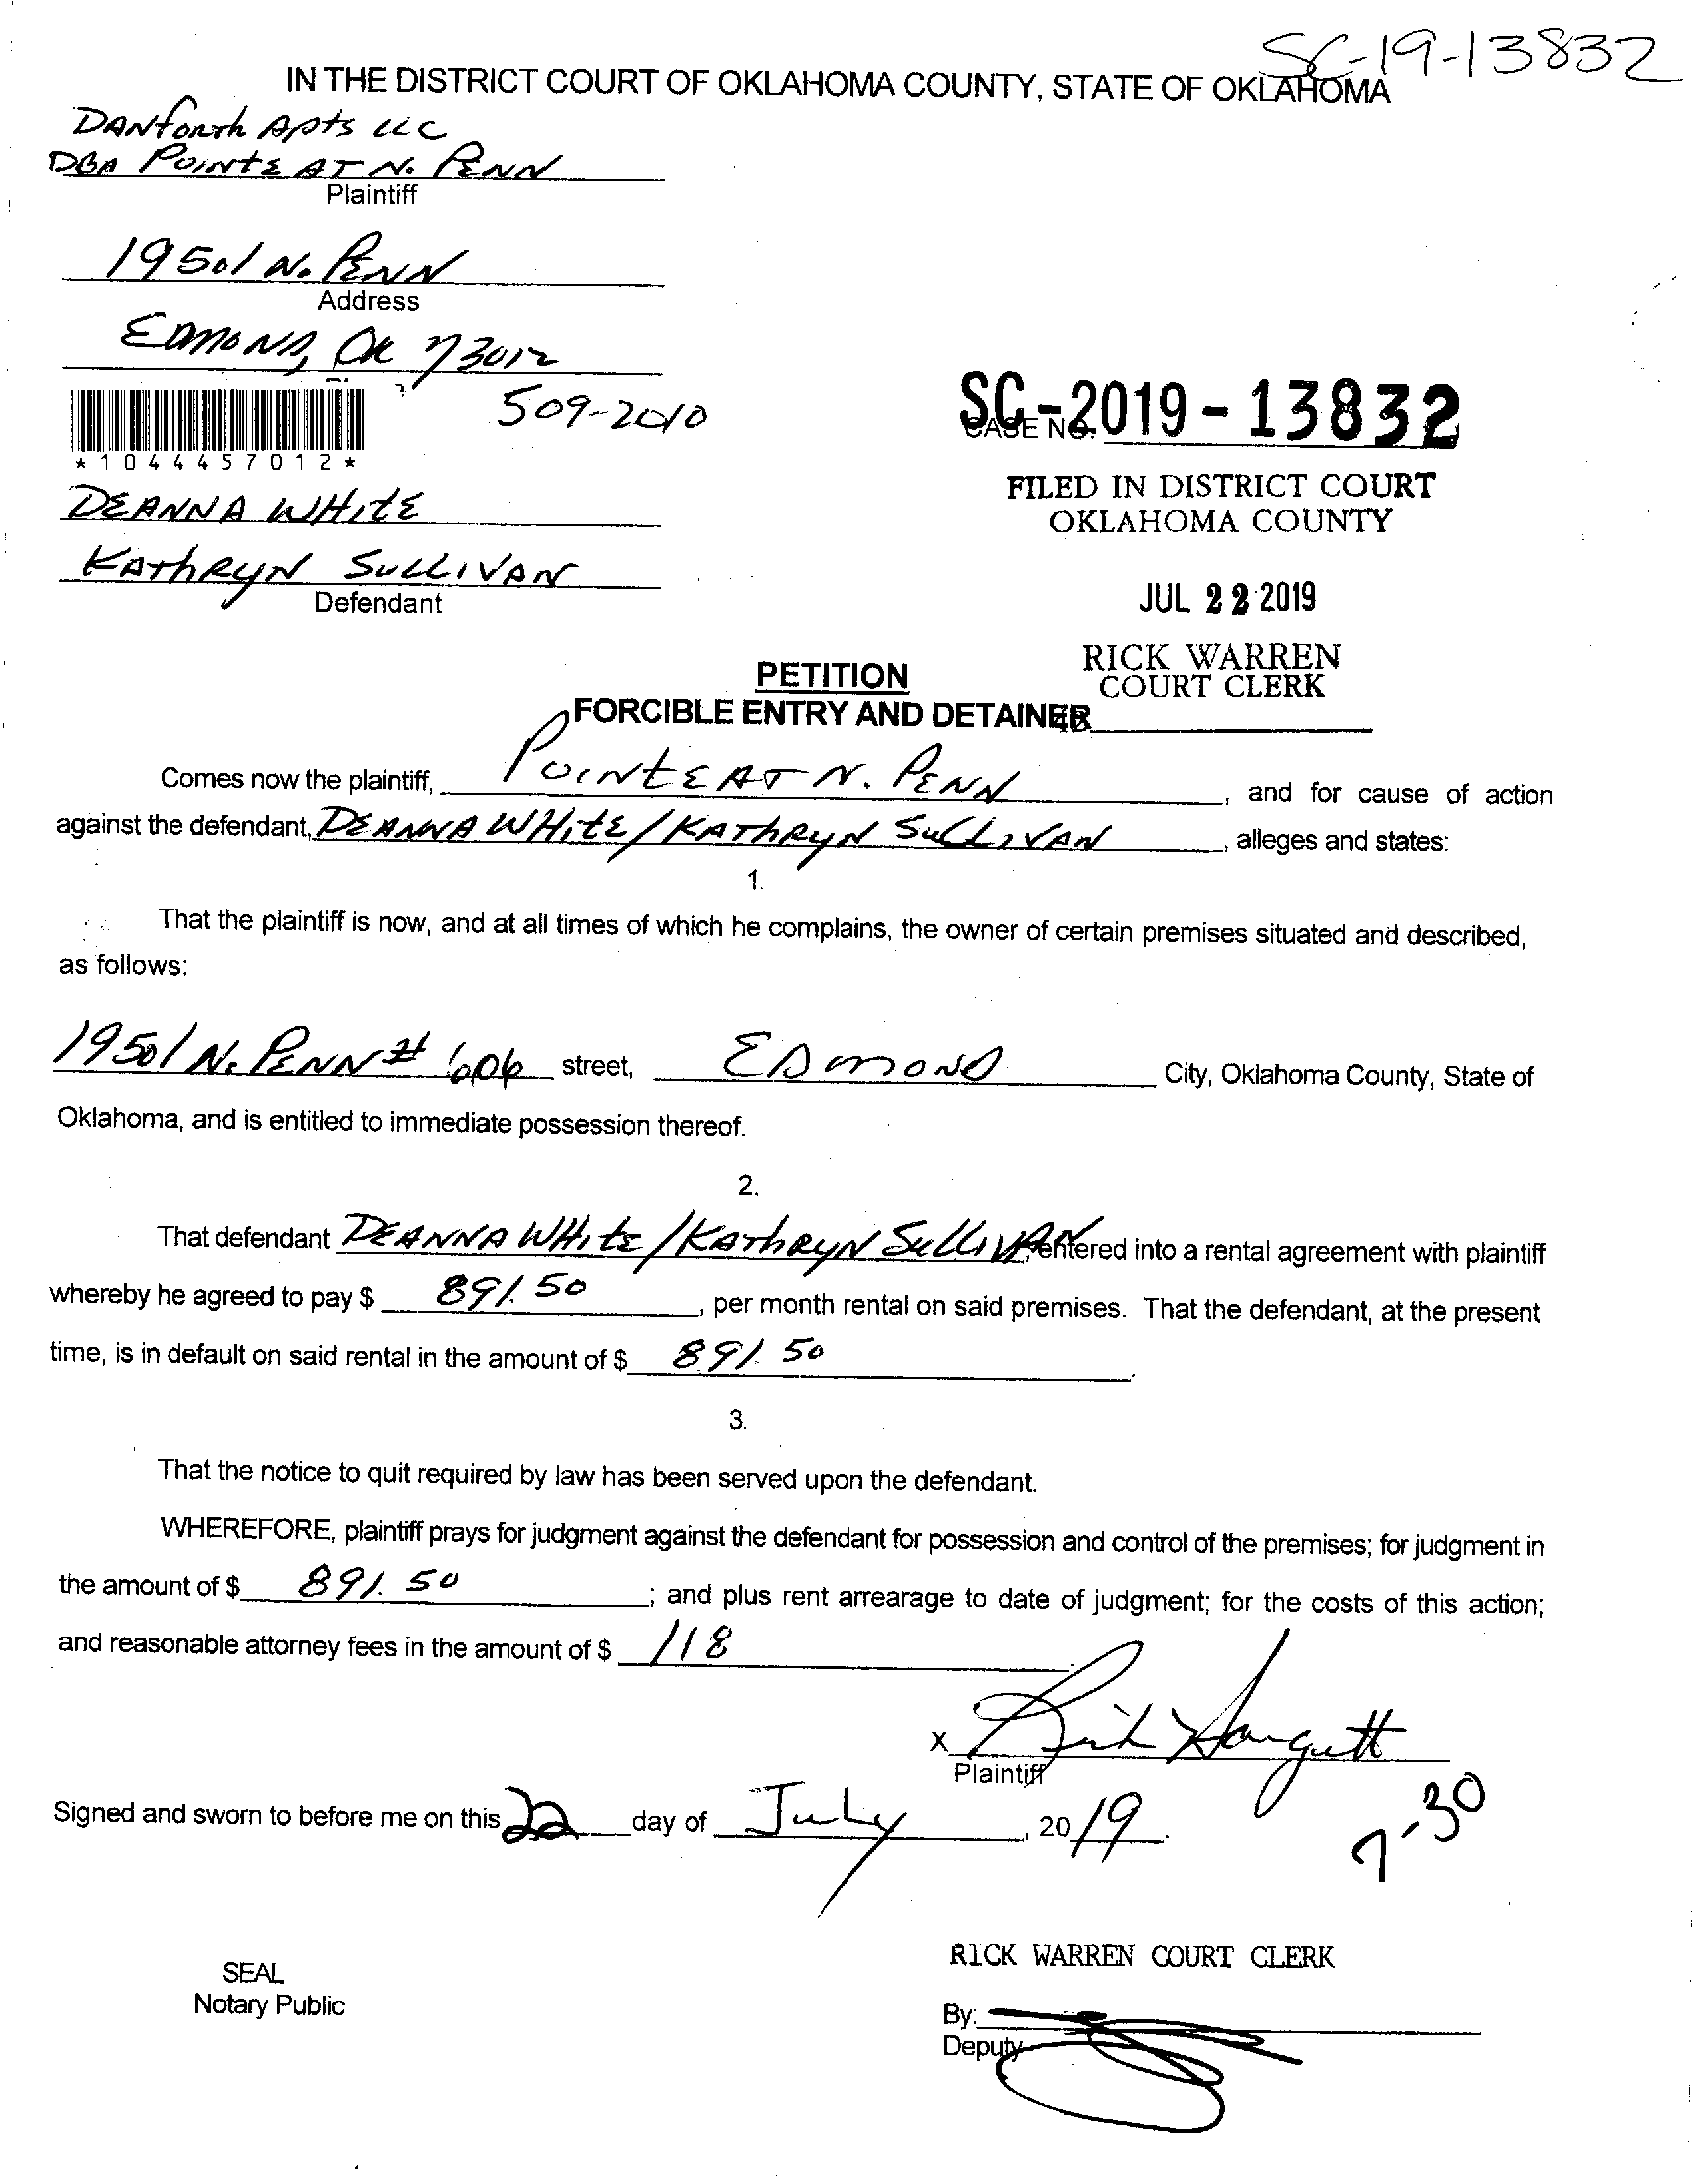 SC-19-13832
IN THE DISTRICT COURT OF OKLAHOMA COUNTY, STATE OF OKLAHOMA
DANforth Apts LLC
DBA POINTE AT N. PENN
Plaintiff
19501 N. PENN
Address
EDMOND, OK 73012
509-2010
SC-2019-13832
CASE NO.
*1044457012*
FILED IN DISTRICT COURT
OKLAHOMA COUNTY
DEANNA WHITE
KAthRYN SULLIVAN
Defendant
JUL 22 2019
RICK WARREN
COURT CLERK
PETITION
FORCIBLE ENTRY AND DETAINER
Comes now the plaintiff, POINTE AT N. PENN, and for cause of action
against the defendant, DEANNA WHitE/KAThRYN SULLIVAN, alleges and states:
1.
That the plaintiff is now, and at all times of which he complains, the owner of certain premises situated and described,
as follows:
19501 N. PENN # 606 street, EDMOND City, Oklahoma County, State of
Oklahoma, and is entitled to immediate possession thereof.
2.
That defendant DEANNA WHite/KAthRYN SULLIVAN entered into a rental agreement with plaintiff
whereby he agreed to pay $ 891.50, per month rental on said premises. That the defendant, at the present
time, is in default on said rental in the amount of $ 891.50.
3.
That the notice to quit required by law has been served upon the defendant.
WHEREFORE, plaintiff prays for judgment against the defendant for possession and control of the premises; for judgment in
the amount of $ 891.50; and plus rent arrearage to date of judgment; for the costs of this action;
and reasonable attorney fees in the amount of $ 118
X
Plaintiff
Signed and sworn to before me on this 22 day of July, 2019.
7-30
RICK WARREN COURT CLERK
SEAL
Notary Public
By:
Deputy